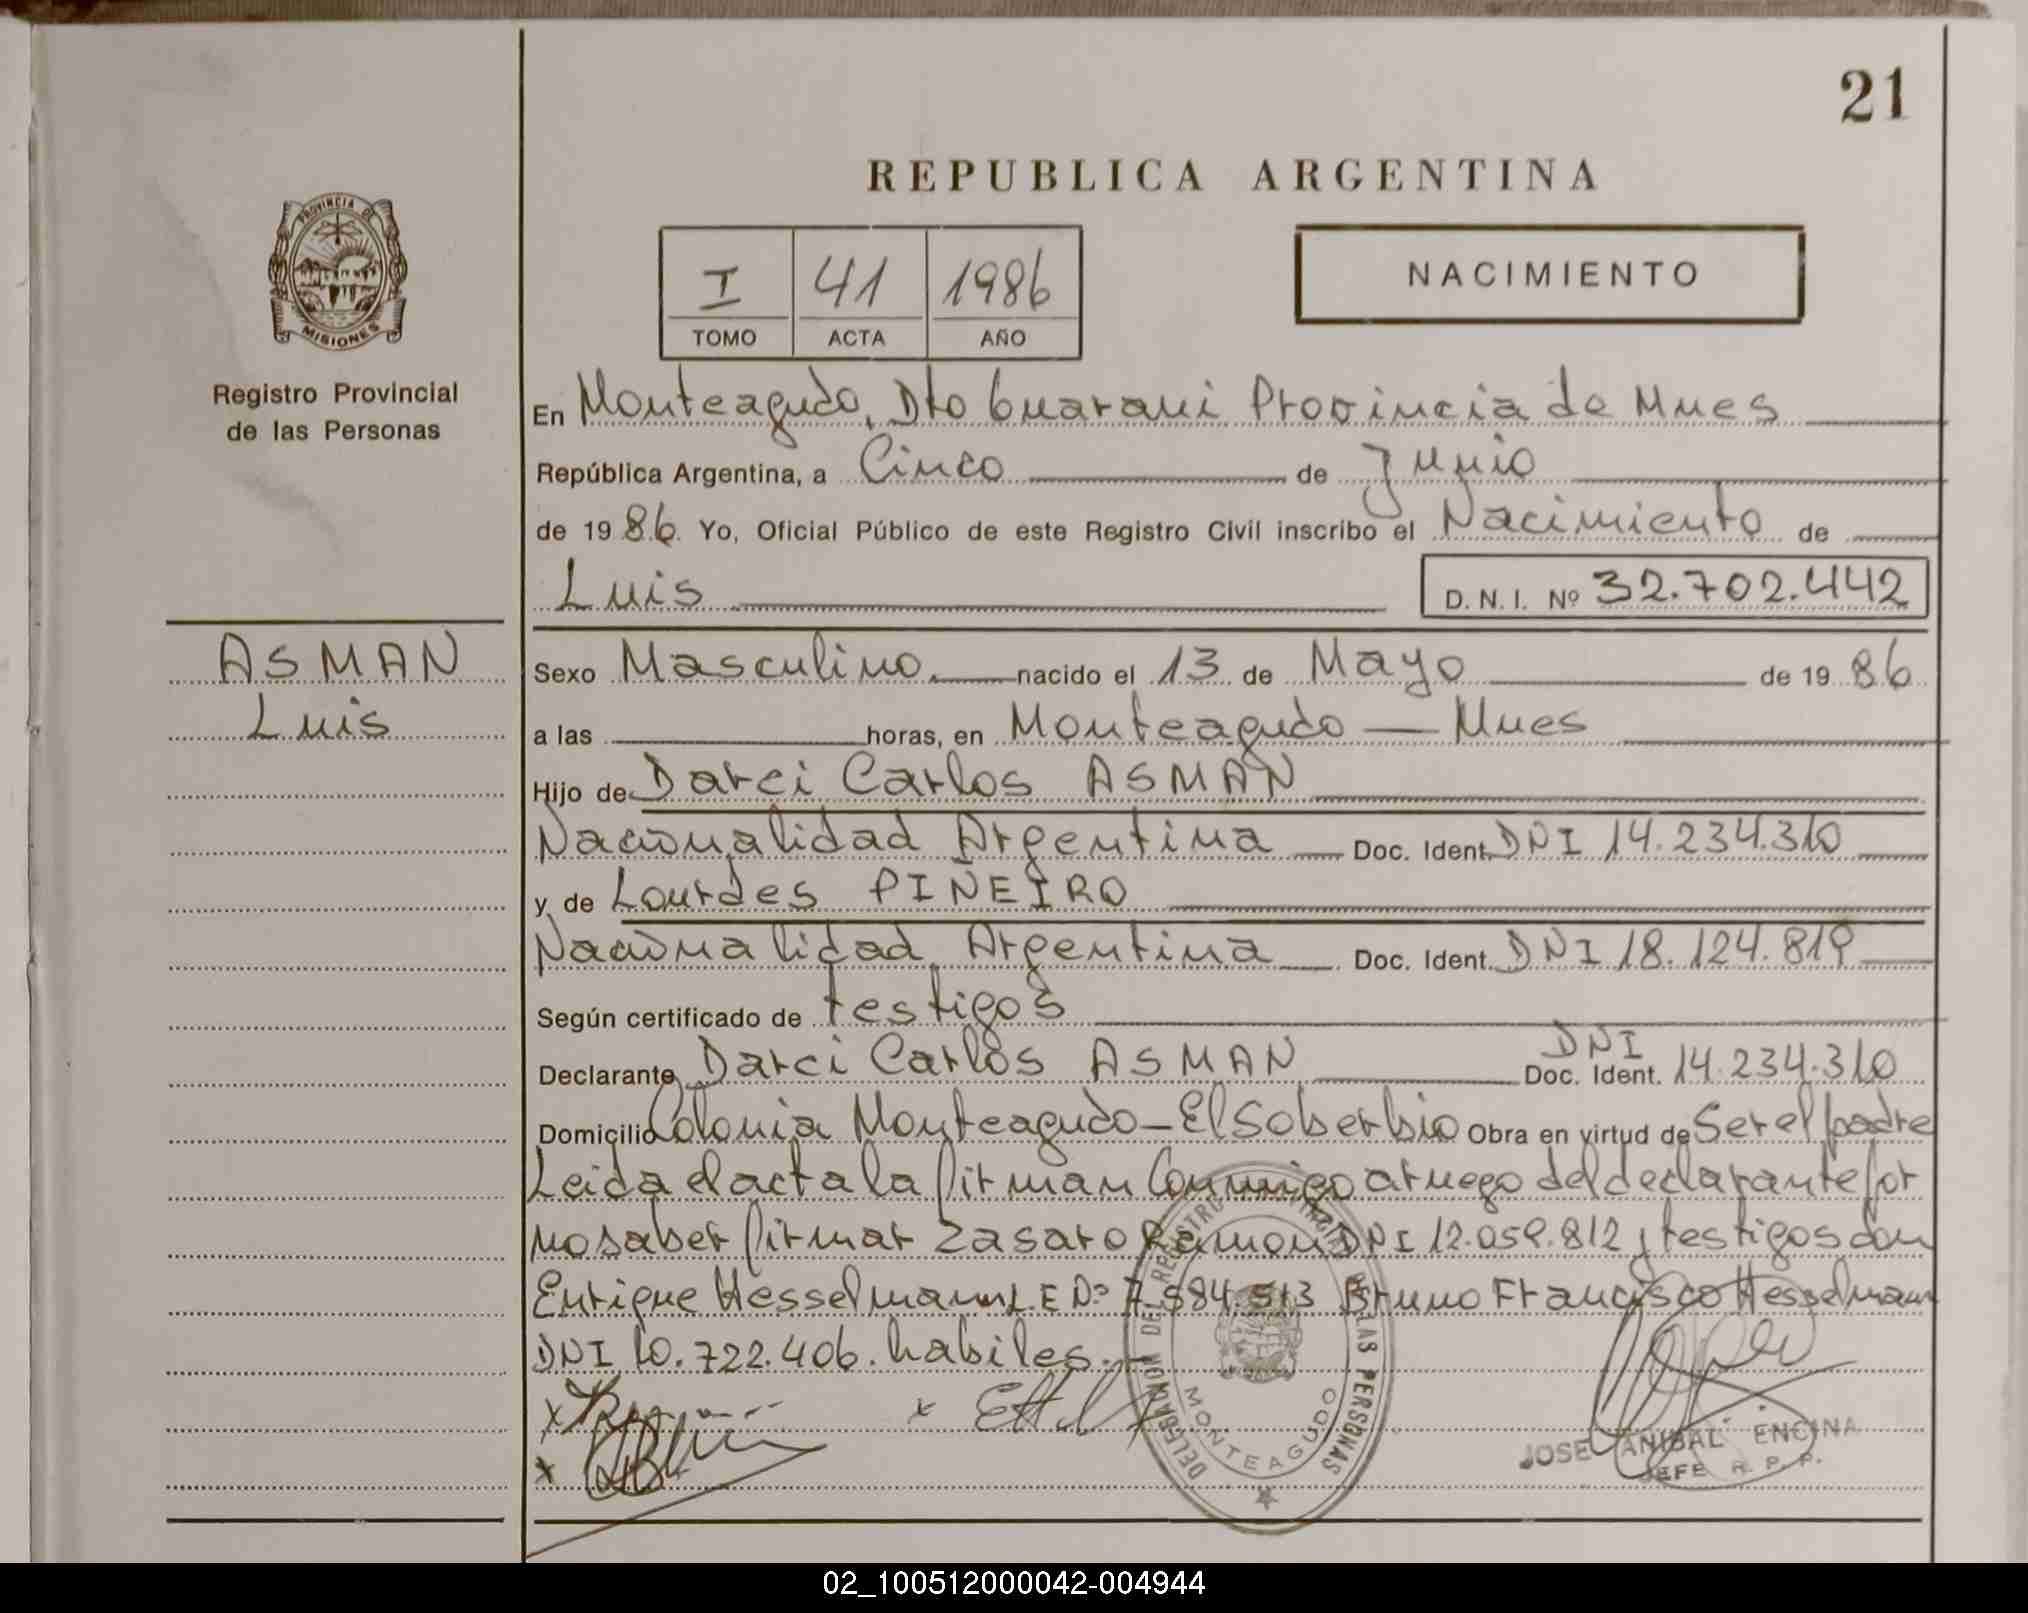 21
REPUBLICA ARGENTINA
PROVINCIA DE MISIONES
Registro Provincial
de las Personas
I 41 1986
TOMO ACTA AÑO
NACIMIENTO
En Monteagudo, Dto Guarani Provincia de Mnes
República Argentina, a Cinco de Junio
de 1986. Yo, Oficial Público de este Registro Civil inscribo el Nacimiento de
Luis D.N.I. Nº 32.702.442
ASMAN
Luis
Sexo Masculino nacido el 13 de Mayo de 1986
a las horas, en Monteagudo — Mnes
Hijo de Darci Carlos ASMAN
Nacionalidad Argentina Doc. Ident. DNI 14.234.310
y de Lourdes PIÑEIRO
Nacionalidad Argentina Doc. Ident. DNI 18.124.819
Según certificado de testigos
Declarante Darci Carlos ASMAN DNI Doc. Ident. 14.234.310
Domicilio Colonia Monteagudo - El Soberbio Obra en virtud de Ser el padre
Leida el acta la firman Conmigo a ruego del declarante por
no saber firmar Zasaro Ramon DNI 12.059.812 y testigos don
Enrique Hesselmann L E Nº 7.584.513 Bruno Francisco Hesselmann
DNI 10.722.406. habiles.-
DELEGACION DEL REGISTRO PROVINCIAL DE LAS PERSONAS
MONTEAGUDO
JOSE ANIBAL ENCINA
JEFE R. P. P.
02_100512000042-004944